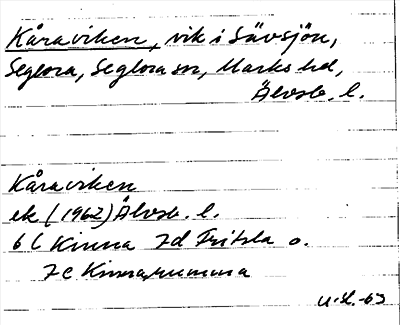 Kåraviken, vik i Sävsjön,
Seglora, Seglora sn, Marks hd,
Älvsb. l.
Kåraviken
ek (1962) Älvsb. l.
6 C Kinna 7d Fritsla o.
7c Kinnarumma
-63